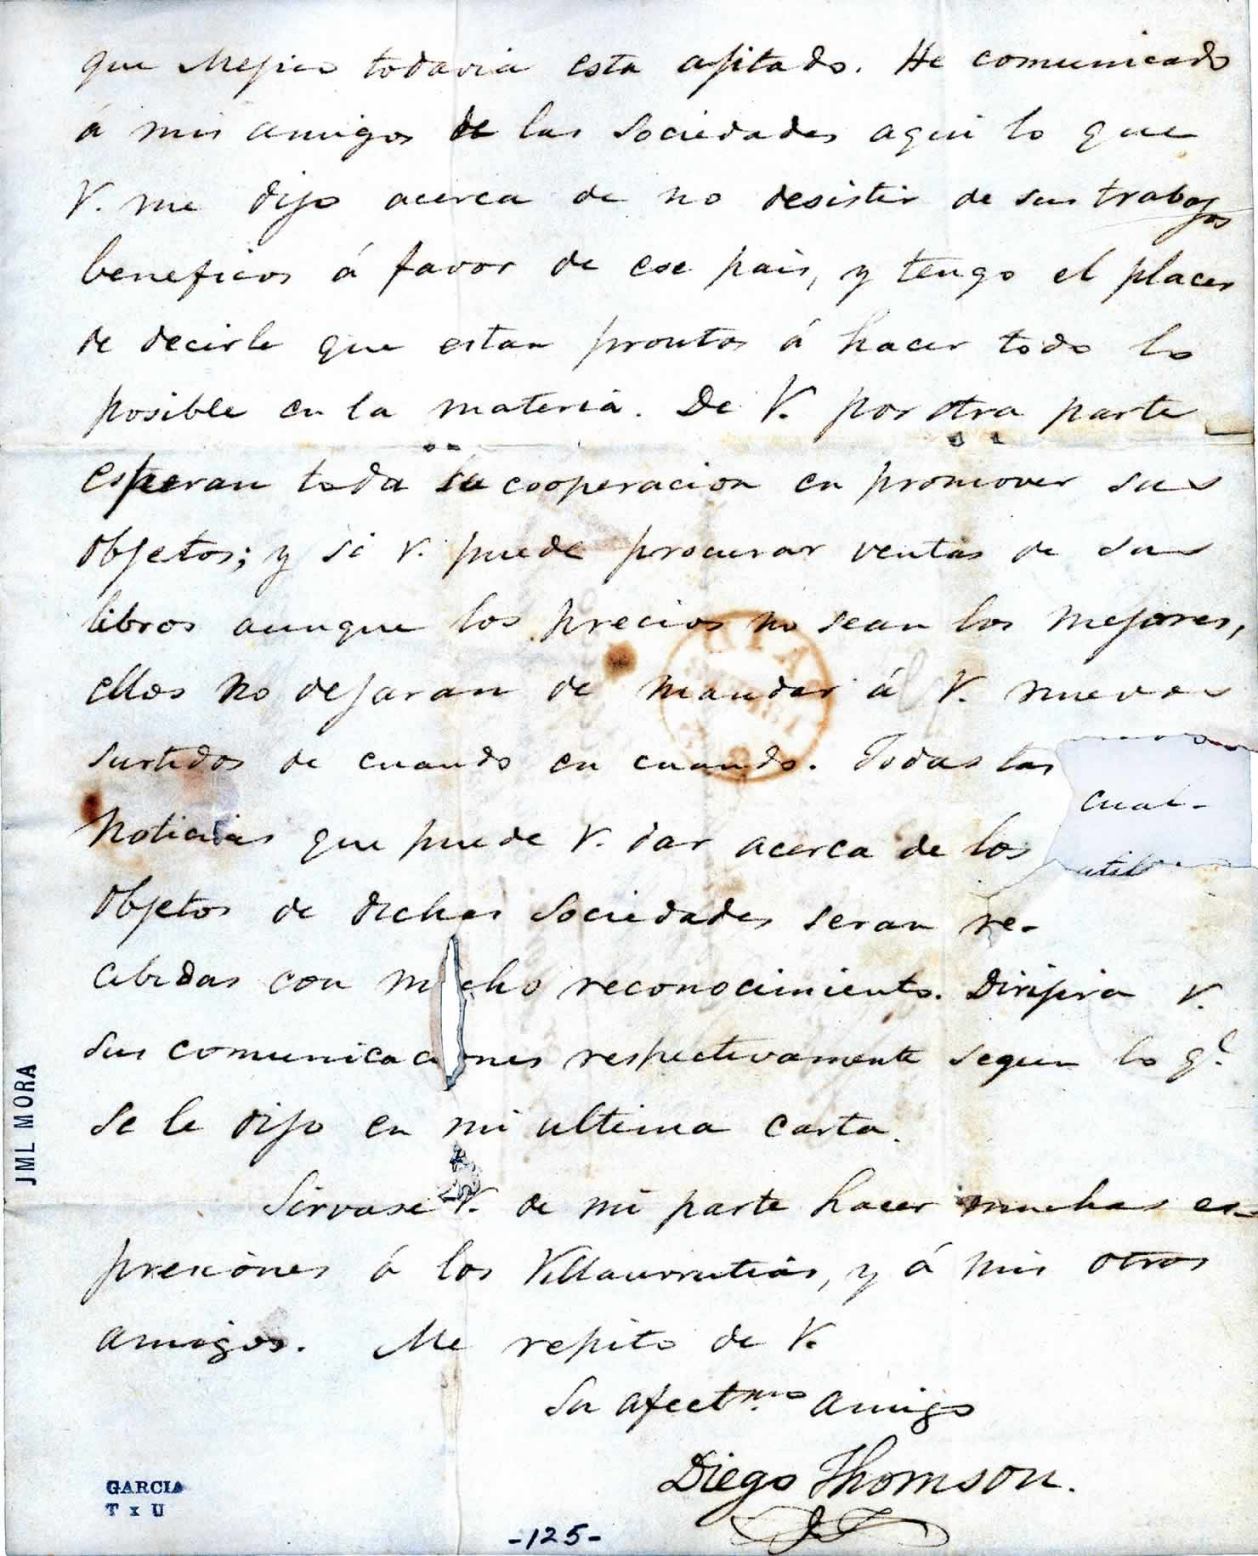 que Mejico todavia esta ajitado. He comunicado
á mis amigos de las Sociedades aqui lo que
V. me dijo acerca de no desistir de sus trabajos
beneficos á favor de ese pais, y tengo el placer
de decirle que estan prontos á hacer todo lo
posible en la materia. De V. por otra parte
esperan toda su cooperacion en promover sus
objetos; y si V. puede procurar ventas de sus
libros aunque los precios no sean los mejores,
ellos no dejaran de mandar á V. nuevos
surtidos de cuando en cuando. Todas las
cual-
noticias que puede V. dar acerca de los
objetos de dichas Sociedades seran re-
cibidas con mucho reconocimiento. Dirijira V.
sus comunicaciones respectivamente segun lo q.e
se le dijo en mi ultima carta.
Sirvase V. de mi parte hacer muchas es-
presiones á los Villaurrutias, y á mis otros
amigos. Me repito de V.
Su afect.mo amigo
Diego Thomson.
JML MORA
GARCIA
T x U
-125-